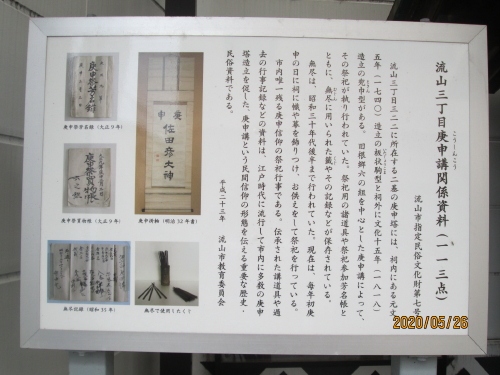 流山三丁目庚申講関係資料（一一三点）
こうしんこう
流山市指定民俗文化財第七号
流山三丁目三二二に所在する二基の庚申塔には、祠内にある元文
五年（一七四〇）造立の板状駒型と祠外に文化十五年（一八一八）
造立の兜巾型がある。旧根郷六の組を中心とした庚申講によって、
その祭祀が執り行われていた。祭祀用の諸道具や祭祀参加芳名帳と
ともに、無尽に用いられた籤やその記録などが保存されている。
無尽は、昭和三十年代後半まで行われていた。現在は、毎年初庚
申の日に祠に幟や幕を飾りつけ、お供えをして祭祀を行っている。
市内唯一残る庚申信仰の祭祀行事である。伝承された講道具や過
去の行事記録などの資料は、江戸時代に流行して市内に多数の庚申
塔造立を促した、庚申講という民間信仰の形態を伝える重要な歴史・
民俗資料である。
平成二十三年　流山市教育委員会
庚申祭芳名録（大正9年）
庚申祭貨物帳（大正9年）
庚申掛軸（明治32年書）
無尽記録（昭和35年）
無尽で使用したくじ
庚申
猿田彦大神
2020/05/26